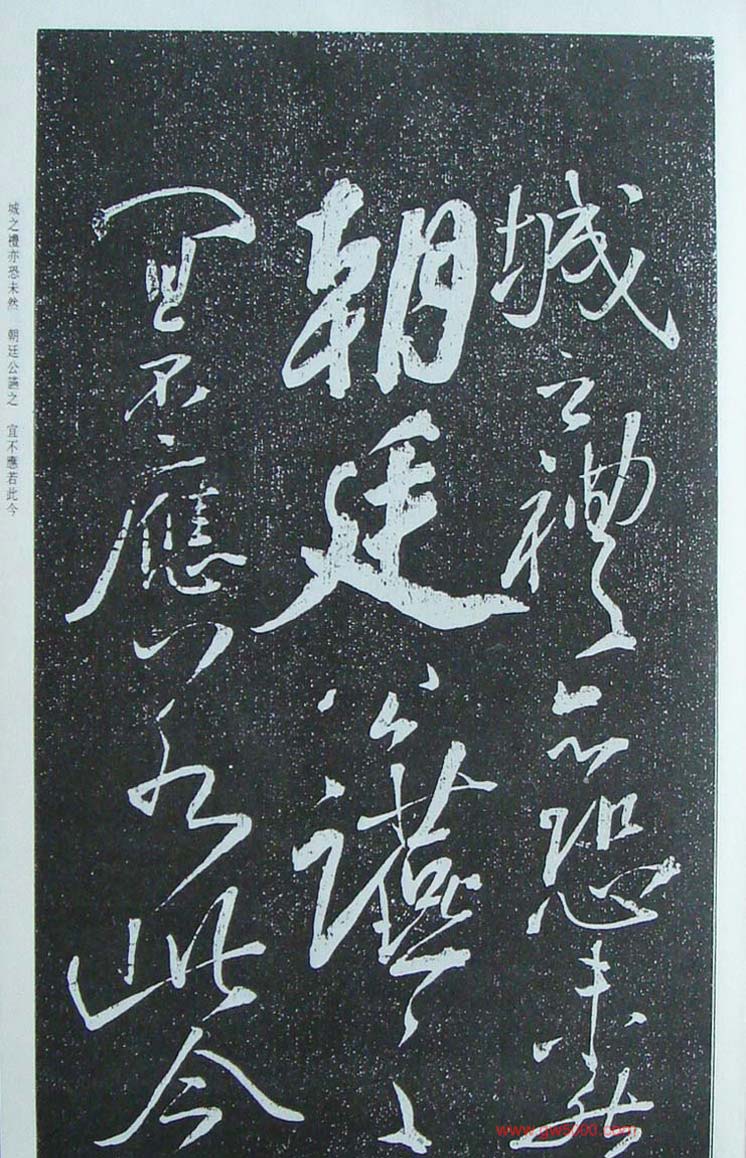 城之禮亦恐未然
朝廷公讌之
宜不應若此今
城之禮亦恐未然　朝廷公讌之　宜不應若此今